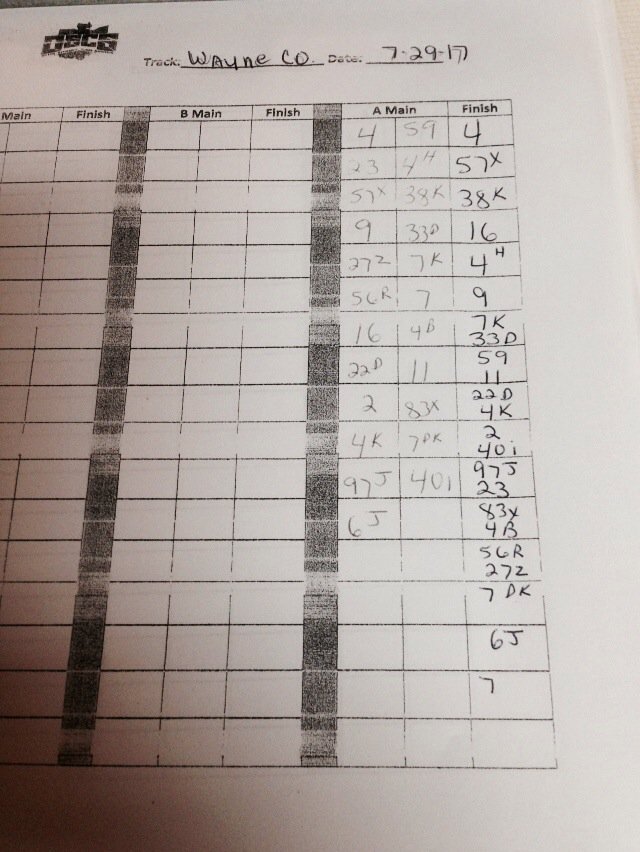 OSCS
Track: Wayne Co. Date: 7-29-17
Main Finish B Main Finish A Main Finish
4 59 4
23 4H 57X
57X 38K 38K
9 33D 16
27Z 7K 4H
56R 7 9
16 4B 7K
33D
22D 11 59
11
2 83X 22D
4K
4K 7DK 2
40i
97J 40i 97J
23
6J 83X
4B
56R
27Z
7DK
6J
7